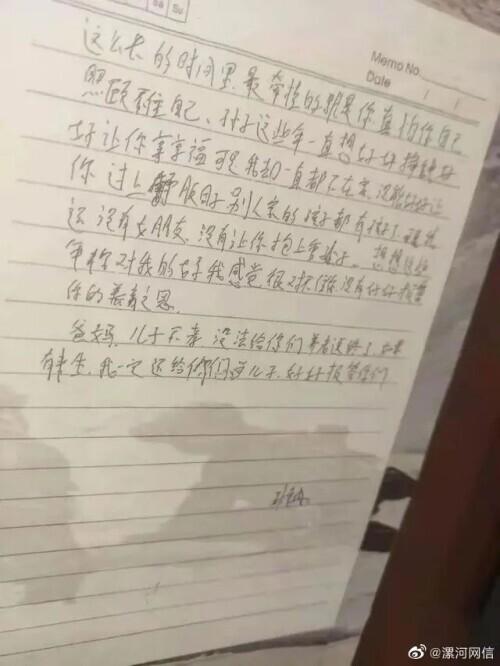 Sa Su
Memo No.
Date / /
这么长的时间里最牵挂的就是你,真怕你自己
照顾不住自己、孙子这些年一直想好好挣钱好
好让你享享福可是我却一直都不在家,没能好好让
你过上舒服日子别人家的孩子都有孩子了
还没有女朋友,没有让你抱上重孙子,想想
爷对我的好我感觉很对不住你,没有好好报答
你的养育之恩
爸妈,儿子不孝 没法给你们养老送终了 如果
有来生,我一定还给你们当儿子,好好报答你们
@漯河网信